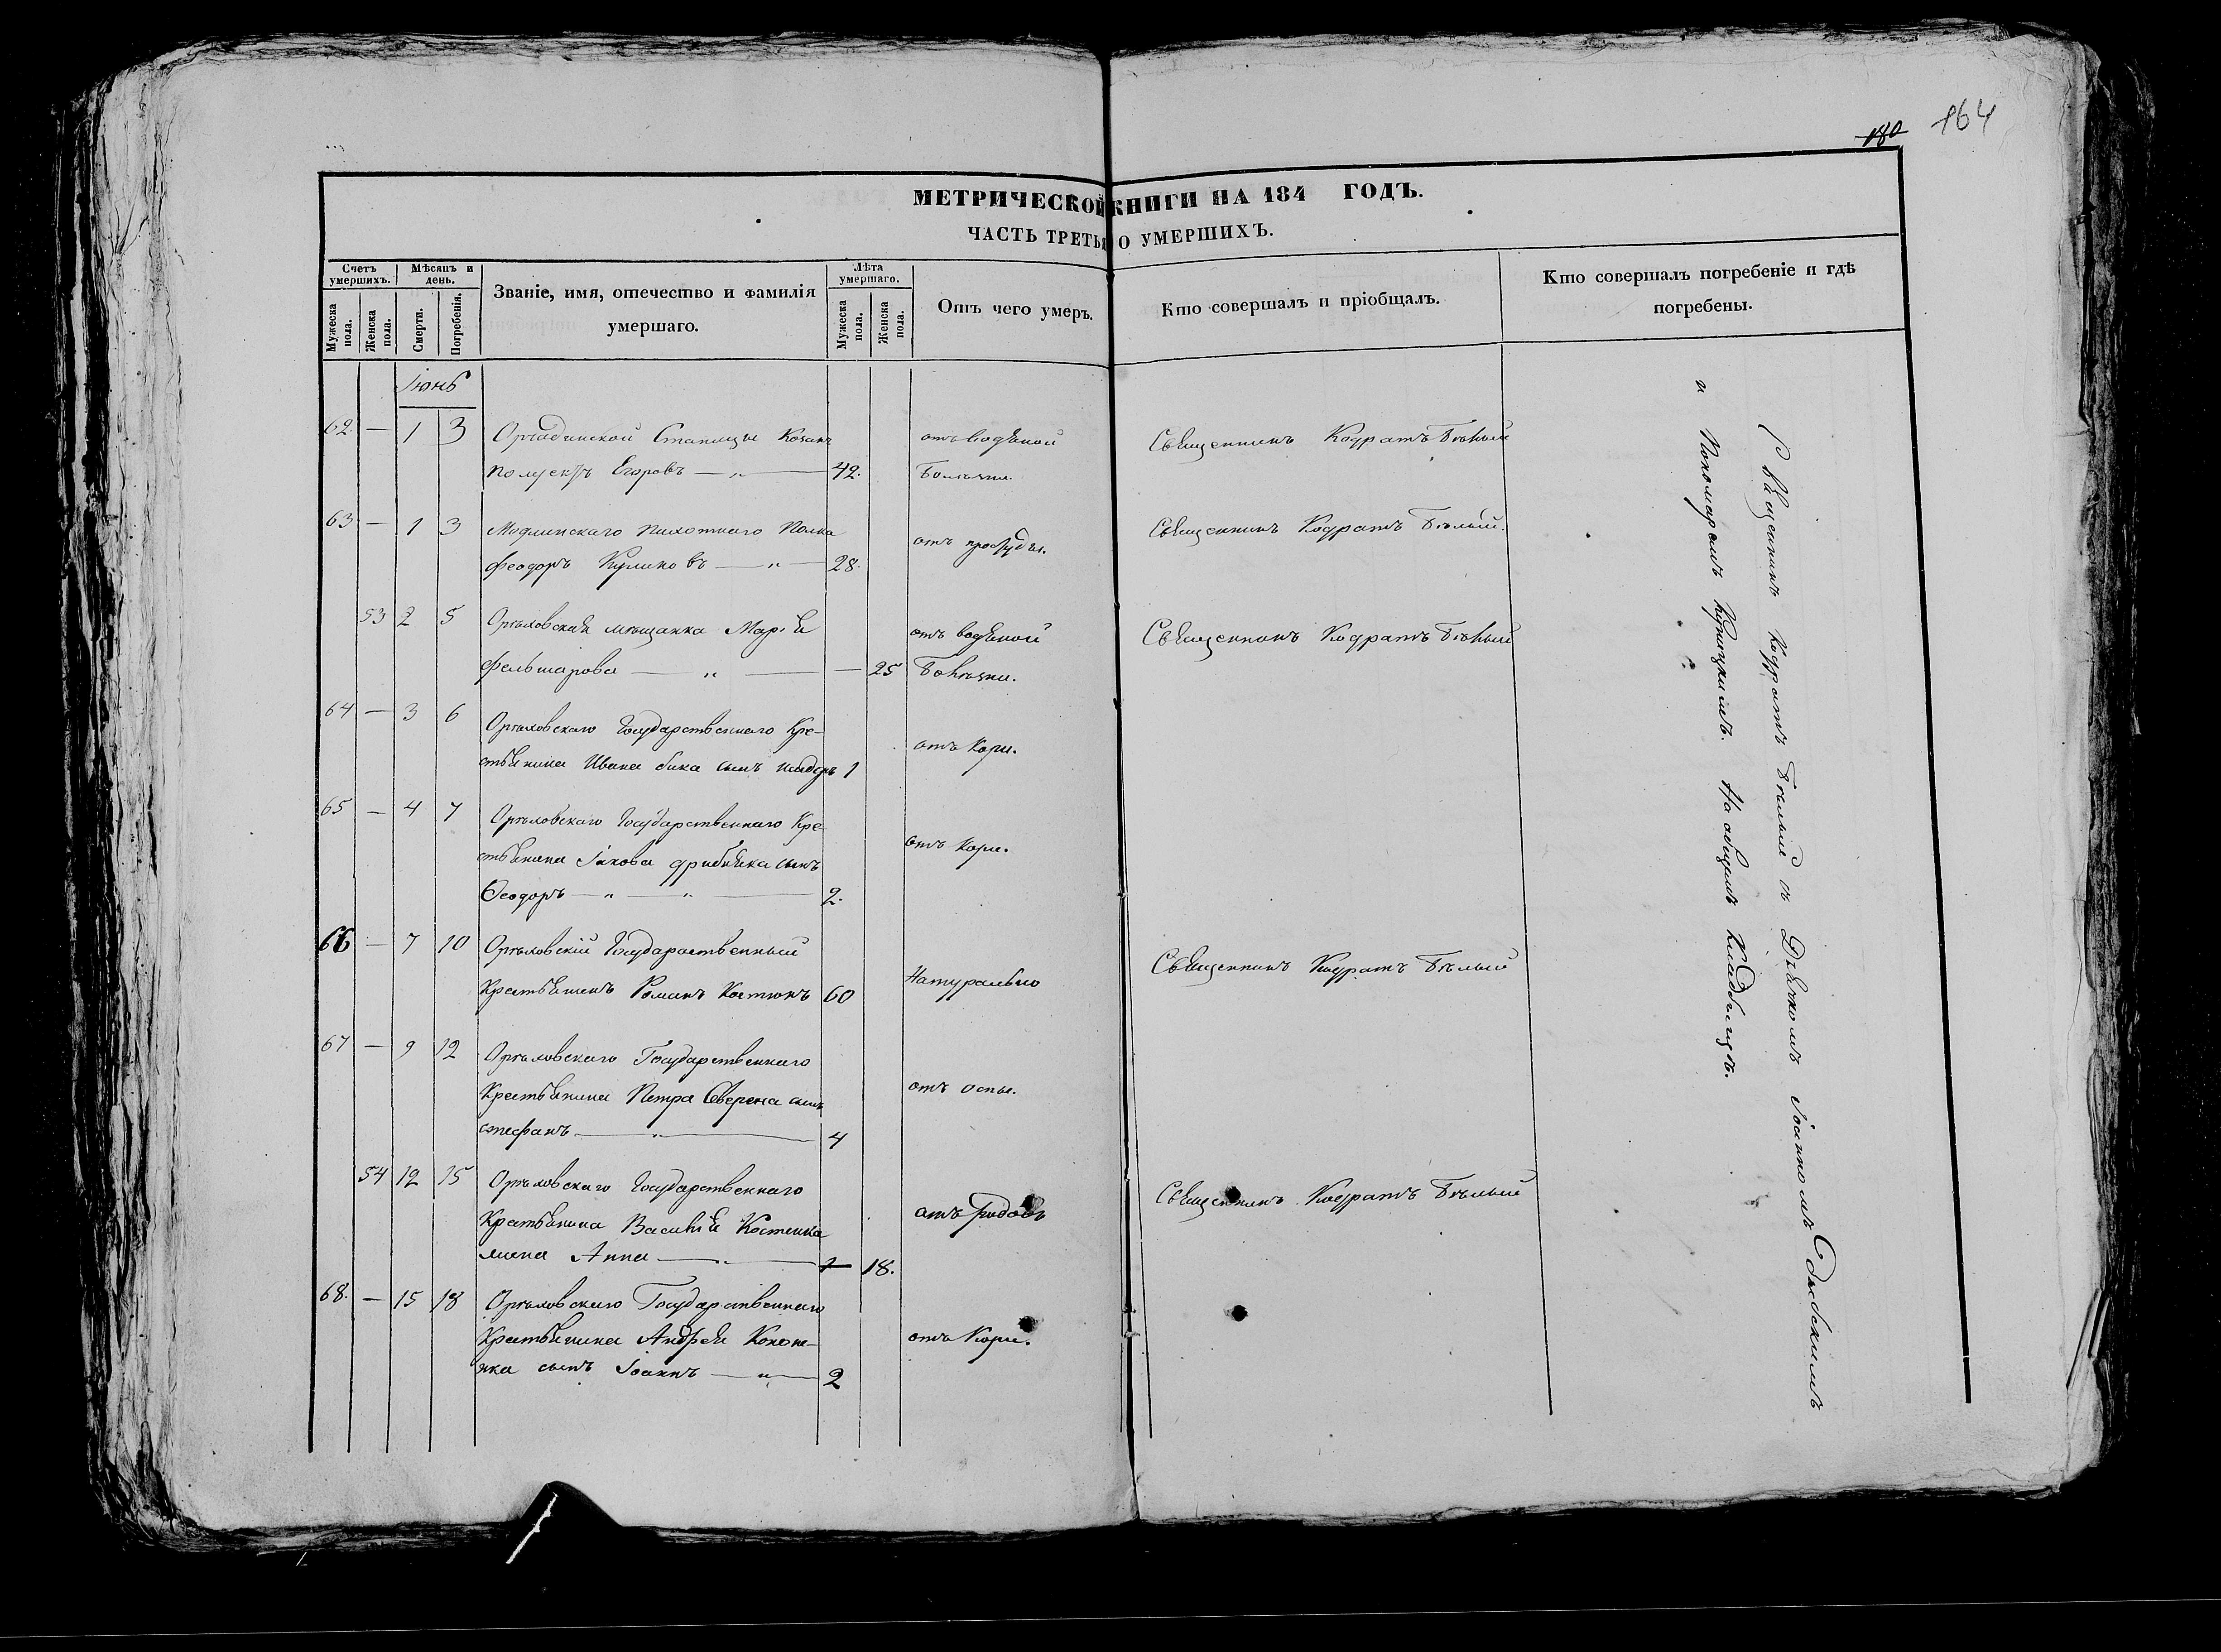 180 164
МЕТРИЧЕСКОЙ КНИГИ НА 184 ГОДЪ.
ЧАСТЬ ТРЕТЬЯ О УМЕРШИХЪ.
Счетъ умершихъ.
Мужеска пола.
Женска пола.
Мѣсяцъ и день.
Смерти.
Погребенія.
Званіе, имя, отечество и фамилія умершаго.
Лѣта умершаго.
Мужеска пола.
Женска пола.
Отъ чего умеръ.
Кто совершалъ и пріобщалъ.
Кто совершалъ погребеніе и гдѣ погребены.
Іюнь
62. — 1 3 Станицы Козакъ отъ водяной Священникъ Кодратъ Бѣлый
Егоровъ — „ — 42. Болѣзни.
63 — 1 3 Модлинскаго пихотнаго Полка отъ простуды. Священникъ Кодратъ Бѣлый.
Феодоръ Куликовъ — „ — 28.
53 2 5 Орѣховская мѣщанка Марія отъ водяной Священникъ Кодратъ Бѣлый
Фельшарова — „ — — 25 Болѣзни.
64 — 3 6 Орѣховскаго Государственнаго Кре-
стьянина Ивана сынъ 1 отъ Кори.
65 — 4 7 Орѣховскаго Государственнаго Кре-
стьянина Іакова сынъ отъ Кори.
Ѳеодоръ — „ — „ — 2.
66 — 7 10 Орѣховскій Государственный
Крестьянинъ Романъ Костюкъ 60 Натурально Священникъ Кодратъ Бѣлый
67 — 9 12 Орѣховскаго Государственнаго
Крестьянина Петра сынъ отъ оспы.
Стефанъ — „ — 4
54 12 15 Орѣховскаго Государственнаго
Крестьянина Василія Костенка отъ Родовъ Священникъ Кодратъ Бѣлый
жена Анна — „ — 18.
68. — 15 18 Орѣховскаго Государственнаго
Крестьянина Андрея Кононе-
нка сынъ Іоаннъ — „ — 2 отъ Кори.
Священникъ Кодратъ Бѣлый съ Дьячкомъ Іоанномъ
и Пономаремъ На общемъ Кладбищѣ.